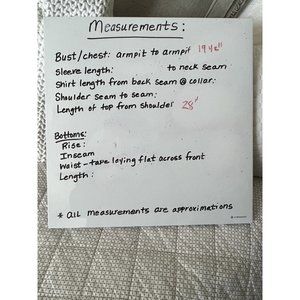 Measurements:
Bust/chest: armpit to armpit 19 1/2"
Sleeve length: to neck seam
Shirt length from back seam @ collar:
Shoulder seam to seam:
Length of top from shoulder 28"
Bottoms:
Rise:
Inseam
Waist - tape laying flat across front
Length:
* all measurements are approximations